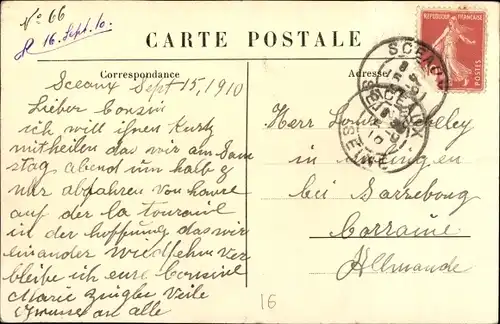 No 66
R 16. Sept. 10.
CARTE POSTALE
Correspondance
Adresse
REPUBLIQUE FRANCAISE
POSTES
SCEAUX
SCEAUX
SEINE
Sceaux Sept 15, 1910
Lieber Consin
ich will ihnen Kurtz
mitheilen das wir am Sam
stag abend um halb 9
uhr abfahren von
auf der la
in der hoffnung das wir
einander wiedsehn ver
bleibe ich eure Consine
Marie Zingler Veile
an alle
Herr Louis
in
bei Sarrebourg
Lorraine
Allemande
16